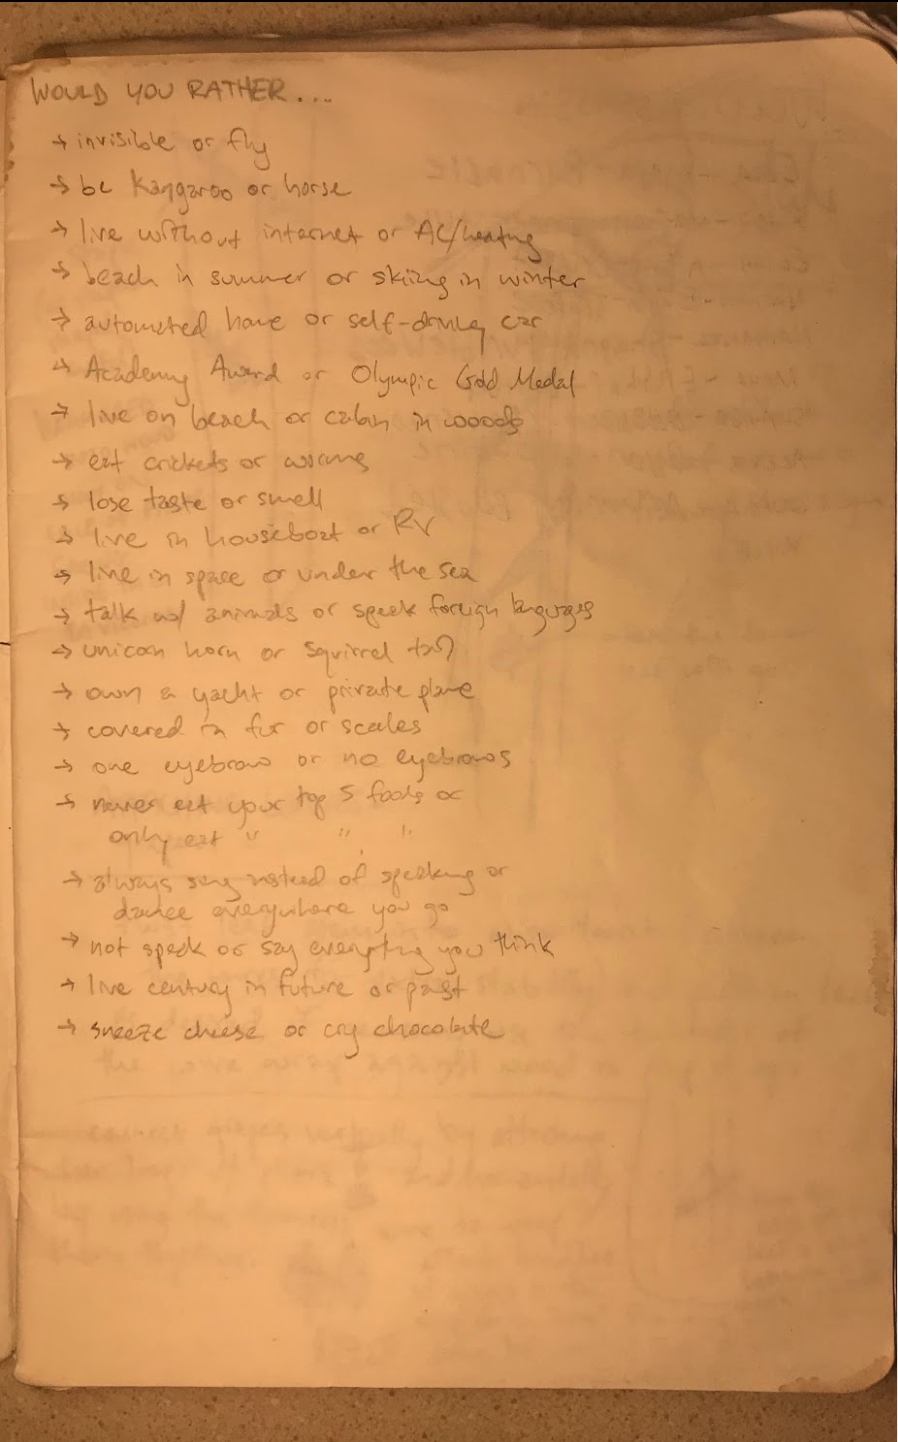 WOULD YOU RATHER...
→ invisible or fly
→ be kangaroo or horse
→ live without internet or AC/heating
→ beach in summer or skiing in winter
→ automated home or self-driving car
→ Academy Award or Olympic Gold Medal
→ live on beach or cabin in woods
→ eat crickets or worms
→ lose taste or smell
→ live in houseboat or RV
→ live in space or under the sea
→ talk w/ animals or speak foreign languages
→ unicorn horn or squirrel tail
→ own a yacht or private plane
→ covered in fur or scales
→ one eyebrow or no eyebrows
→ never eat your top 5 foods or
only eat " " "
→ always sing instead of speaking or
dance everywhere you go
→ not speak or say everything you think
→ live century in future or past
→ sneeze cheese or cry chocolate